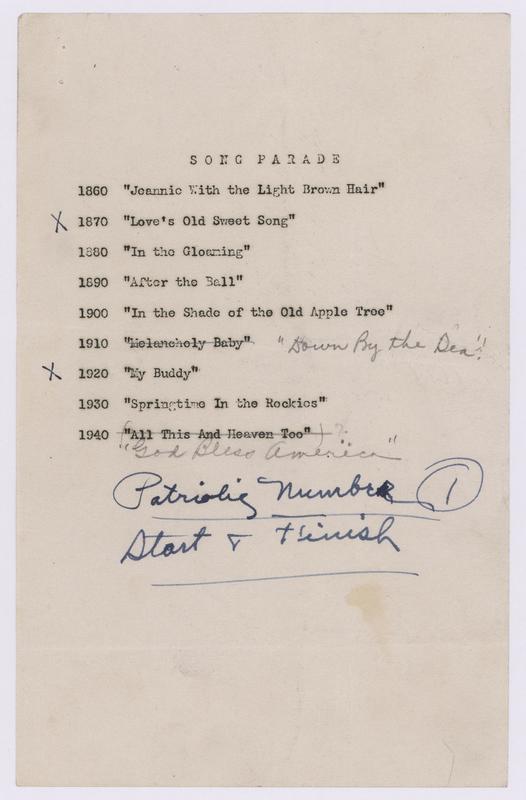 SONG PARADE
1860 "Jeannie With the Light Brown Hair"
X 1870 "Love's Old Sweet Song"
1880 "In the Gloaming"
1890 "After the Ball"
1900 "In the Shade of the Old Apple Tree"
1910 "Melancholy Baby" "Down By the Sea"!
X 1920 "My Buddy"
1930 "Springtime In the Rockies"
1940 ("All This And Heaven Too") ?
"God Bless America"
Patriotic Number 1
Start & Finish